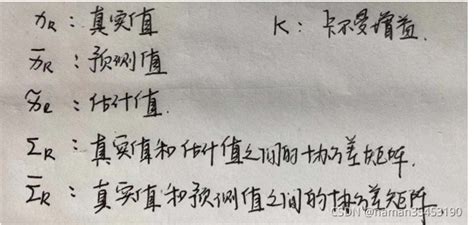 x_R：真实值 K：卡尔曼增益.
x̄_R：预测值
x̃_R：估计值.
Σ_R：真实值和估计值之间的协方差矩阵.
Σ̄_R：真实值和预测值之间的协方差矩阵.
CSDN @naman35453190